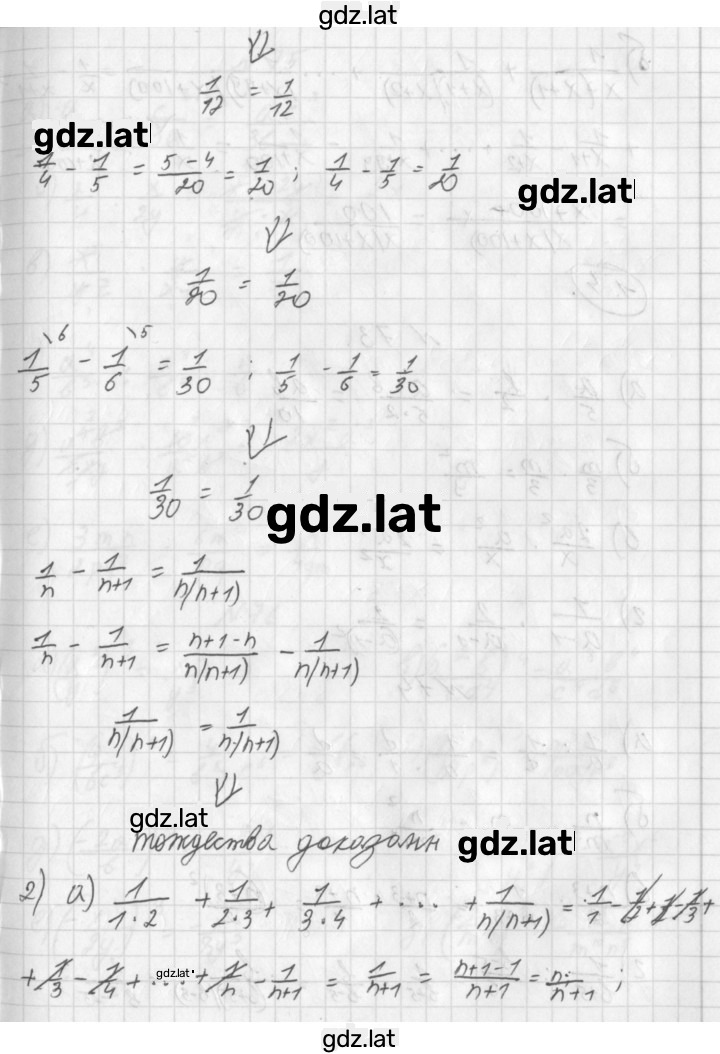 gdz.lat
⇓
1/12 = 1/12
gdz.lat
1/4 - 1/5 = (5-4)/20 = 1/20 ; 1/4 - 1/5 = 1/20
gdz.lat
⇓
1/20 = 1/20
1/5 \6 - 1/6 \5 = 1/30 ; 1/5 - 1/6 = 1/30
⇓
1/30 = 1/30
gdz.lat
1/n - 1/(n+1) = 1/(n(n+1))
1/n - 1/(n+1) = (n+1-n)/(n(n+1)) - 1/(n(n+1))
1/(n(n+1)) = 1/(n·(n+1))
⇓
gdz.lat
тождества доказаны
gdz.lat
2) а) 1/(1·2) + 1/(2·3) + 1/(3·4) + ... + 1/(n(n+1)) = 1/1 - 1/2 + 1/2 - 1/3 +
+ 1/3 - 1/4 + ... + 1/n - 1/(n+1) = 1/(n+1) = (n+1-1)/(n+1) = n/(n+1) ;
gdz.lat
gdz.lat